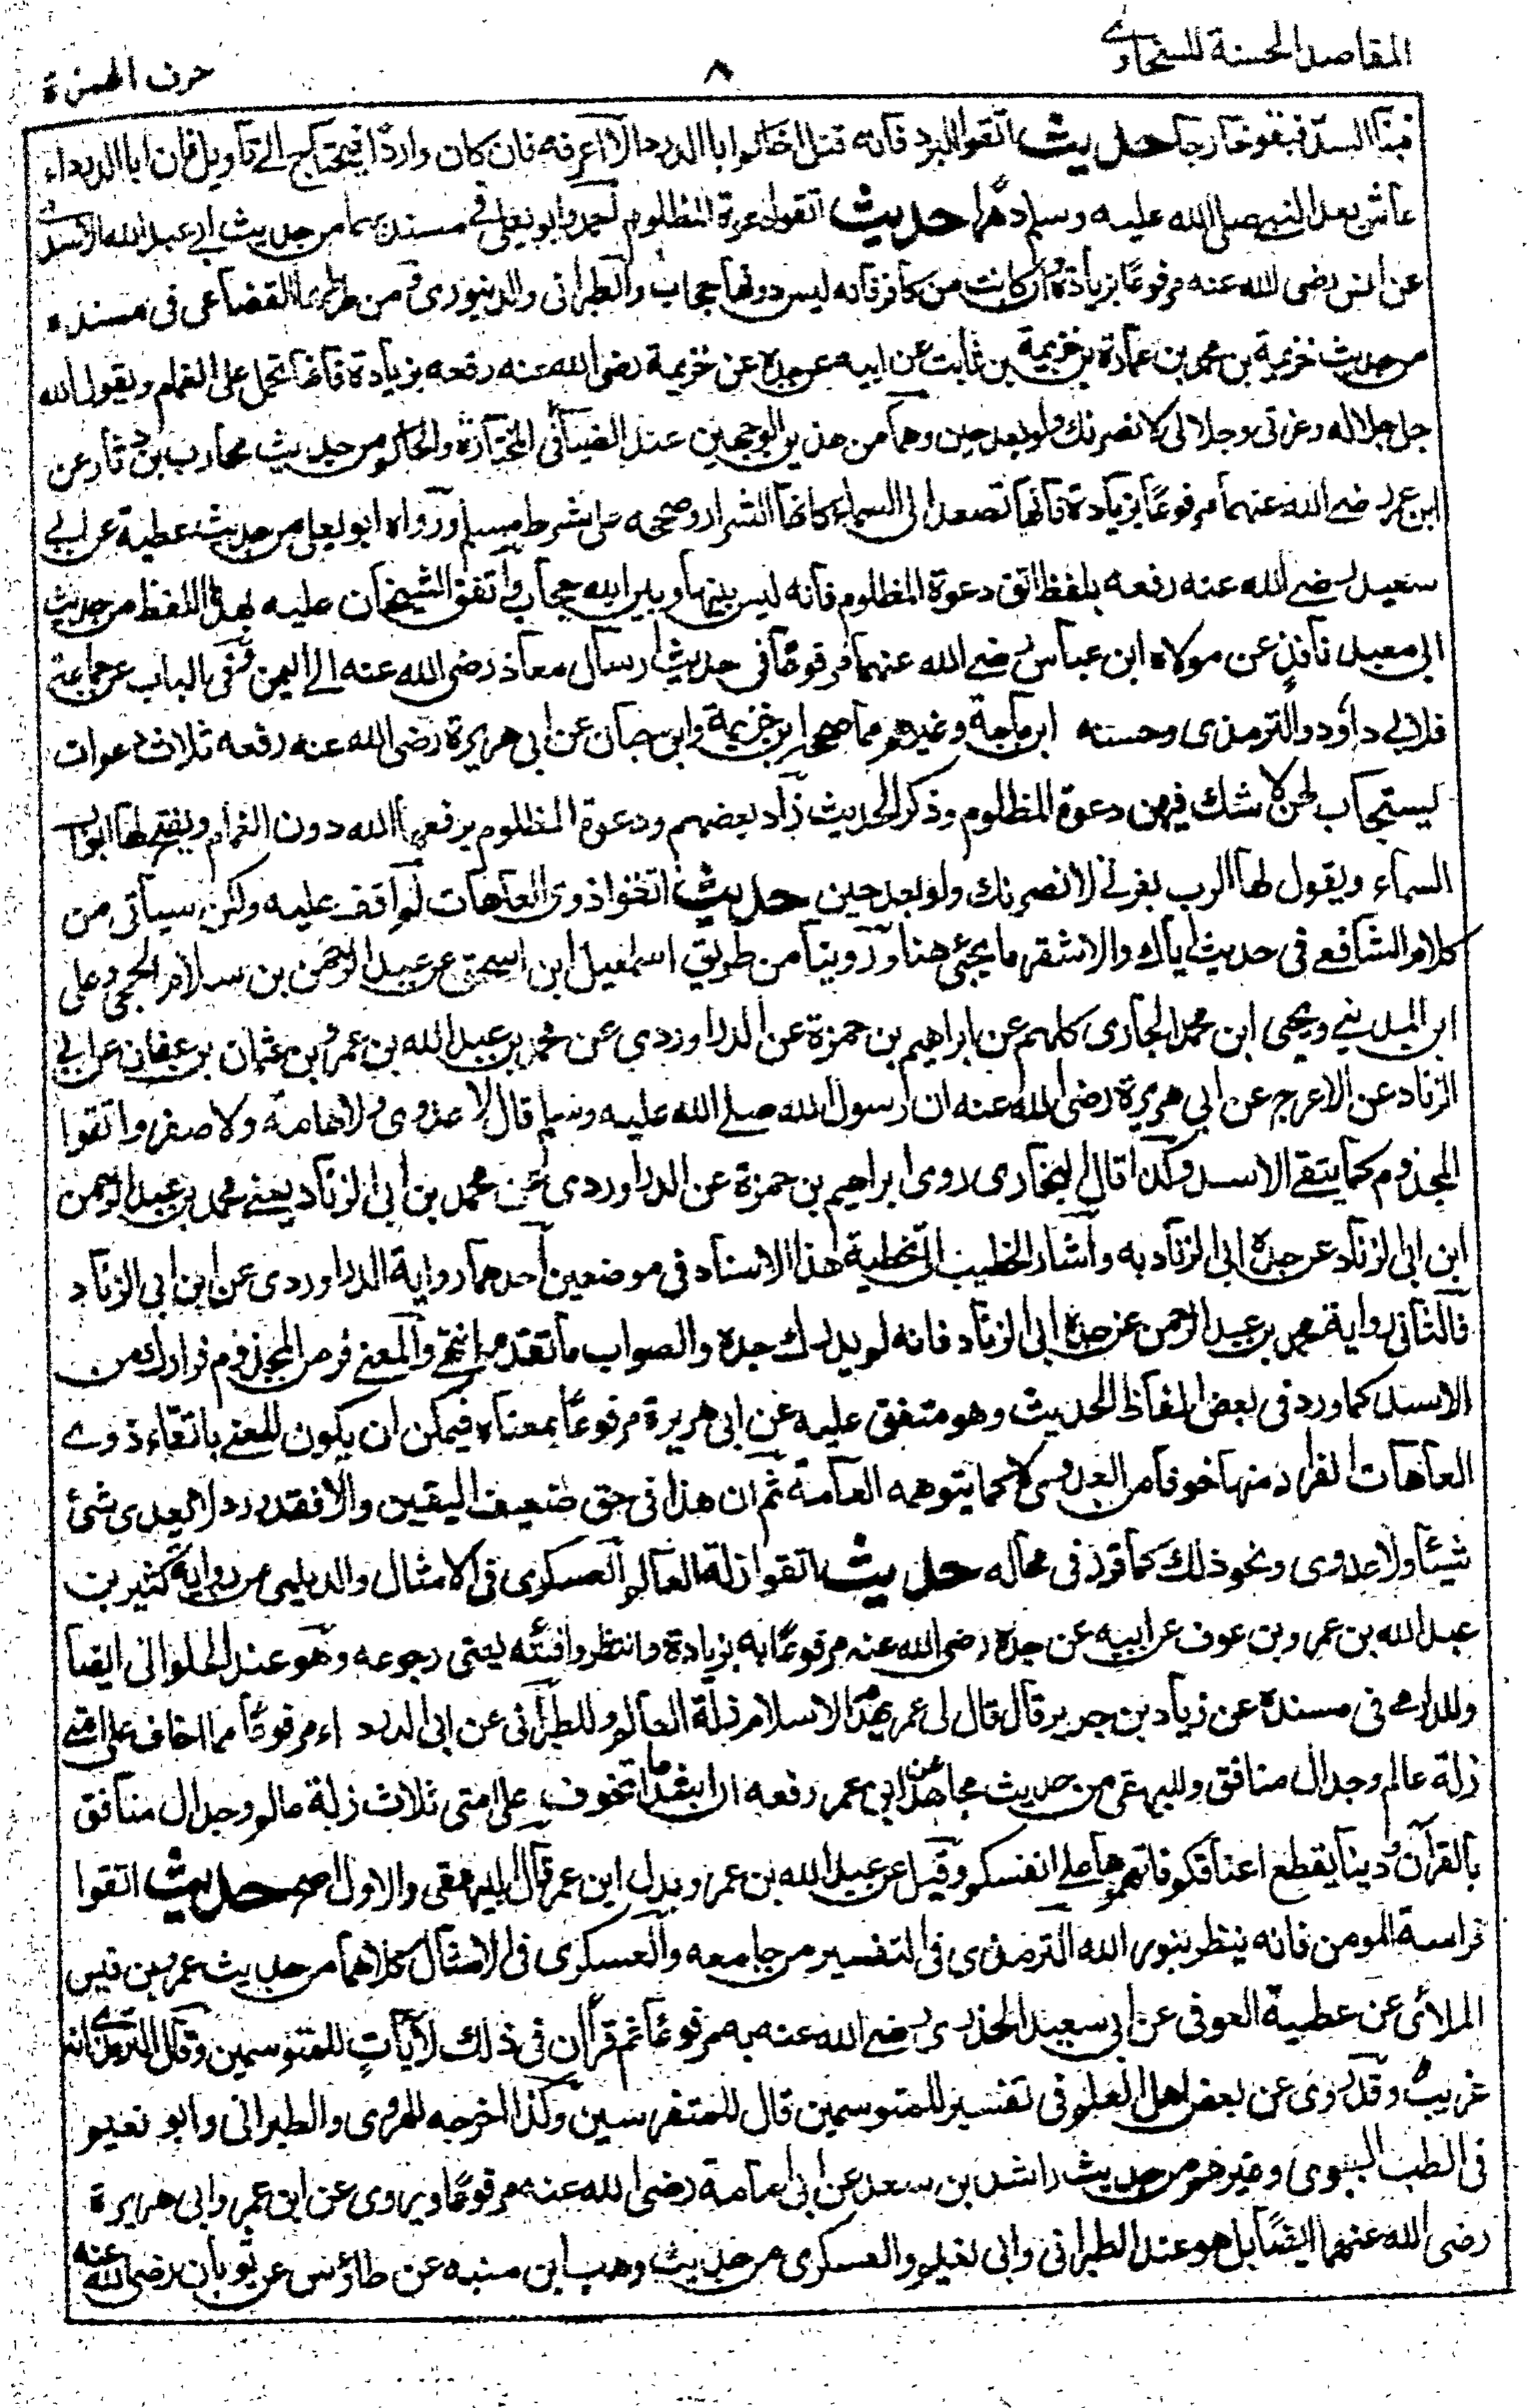 المقاصد الحسنة للسخاوي
٨
حرف الهمزة
فبنا السد فبقو خارجا حديث اتقوا البرد فانه قتل اخاكم ابا الدرداء لا اعرفه فان كان واردا فيحتاج الى تاويل فان ابا الدرداء
عاش بعد النبي صلى الله عليه وسلم دهرا حديث اتقوا دعوة المظلوم احمد وابو يعلى في مسنديهما من حديث ابي عبد الله الاسدي
عن انس رضى الله عنه مرفوعا بزيادة وان كانت من كافر فانه ليس دونها حجاب والطبرانى والدينورى و من طريقهما القضاعى فى مسنده
من حديث خزيمة بن محمد بن عمارة بن خزيمة بن ثابت عن ابيه عن جده عن خزيمة رضى الله عنه رفعه بزيادة فانها تحمل على الغمام ويقول الله
جل جلاله وعزتى وجلالى لانصرنك ولو بعد حين وهما من هذين الوجهين عند الضياء فى المختارة والحاكم من حديث محارب بن دثار عن
ابن عمر رضي الله عنهما مرفوعا بزيادة فانها تصعد الى السماء كانها الشرار وصححه على شرط مسلم ورواه ابو يعلى من حديث عطية عن ابي
سعيد رضي الله عنه رفعه بلفظ اتق دعوة المظلوم فانه ليس بينها وبين الله حجاب واتفق الشيخان عليه بهذا اللفظ من حديث
ابى معبد نافذ عن مولاه ابن عباس رضي الله عنهما مرفوعا فى حديث ارسال معاذ رضى الله عنه الى اليمن وفى الباب عن جماعة
فلابي داؤد والترمذى وحسنه ابن ماجة وغيرهم مما صححه ابن خزيمة وابن حبان عن ابى هريرة رضى الله عنه رفعه ثلاث دعوات
يستجاب لهن لا شك فيهن دعوة المظلوم وذكر الحديث زاد بعضهم ودعوة المظلوم يرفعها الله دون الغمام ويفتح لها ابواب
السماء ويقول لها الرب بعزتي لانصرنك ولو بعد حين حديث اتقوا ذوى العاهات لم اقف عليه ولكن سياتى من
كلام الشافعے فى حديث اياك والاشقر ما يجئ هنا وروينا من طريق اسمعيل ابن اسحق عن عبد الرحمن بن سلام الجمحى وعلى
ابن المدينے ويحيى ابن محمد الجارى كلهم عن ابراهيم بن حمزة عن الدراوردي عن محمد بن عبد الله بن عمرو بن عثمان بن عفان عن ابي
الزناد عن الاعرج عن ابى هريرة رضى الله عنه ان رسول الله صلے الله عليه وسلم قال لا عدوى ولا هامة ولا صفر واتقوا
المجذوم كما يتقے الاسد وكذا قال البخارى روى ابراهيم بن حمزة عن الدراوردى عن محمد بن ابى الزناد يعنے محمد بن عبد الرحمن
ابن ابى الزناد عن جده ابى الزناد به واشار الخطيب الى تخطية هذا الاسناد فى موضعين احدهما رواية الدراوردى عن ابن ابى الزناد
فالثانى رواية محمد بن عبد الرحمن عن جده ابى الزناد فانه لم يدرك جده والصواب ما تقدم انتهى والمعنے فر من المجذوم فرارك من
الاسد كما ورد فى بعض الفاظ الحديث وهو متفق عليه عن ابى هريرة مرفوعا بمعناه فيمكن ان يكون المعنے باتقاء ذوے
العاهات الفرار منها خوفا من العدوى لا كما يتوهمه العامة ثم ان هذا فى حق ضعيف اليقين والا فقد ورد لا يعدى شئ
شيئا ولا عدوى ونحو ذلك كما قرر فى محاله حديث اتقوا زلة العالم العسكرى فى الامثال والديلمى من رواية كثير بن
عبد الله بن عمرو بن عوف عن ابيه عن جده رضى الله عنه مرفوعا به بزيادة وانتظروا فيئته يعنى رجوعه وهو عند الحلوانى ايضا
وللدارمے فى مسنده عن زياد بن جرير قال قال لى عمر يهدم الاسلام زلة العالم وللطبرانى عن ابى الدرداء مرفوعا مما اخاف على امتى
زلة عالم وجدال منافق وللبيهقى من حديث مجاهد عن ابن عمر رفعه ان اشد ما اتخوف على امتى ثلاث زلة عالم وجدال منافق
بالقران ودنيا يقطع اعناقكم فاتهموها على انفسكم وقيل عن عبد الله بن عمرو بدل ابن عمر قال البيهقى والاول اصح حديث اتقوا
فراسة المومن فانه ينظر بنور الله الترمذى فى التفسير من جامعه والعسكرى فى الامثال كلاهما من حديث عمرو بن قيس
الملائى عن عطية العوفى عن ابى سعيد الخدرى رضي الله عنه به مرفوعا ثم قرأ ان فى ذلك لآيات للمتوسمين وقال الترمذى انه
غريب وقد روى عن بعض اهل العلم فى تفسير للمتوسمين قال للمتفرسين وكذا اخرجه الهروى والطبرانى وابو نعيم
فى الطب النبوى وغيرهم من حديث راشد بن سعد عن ابى امامة رضى الله عنه مرفوعا ويروى عن ابن عمر وابى هريرة
رضى الله عنهما ايضا بل هو عند الطبرانى وابى نعيم والعسكرى من حديث وهب ابن منبه عن طاؤس عن ثوبان رضى الله عنه